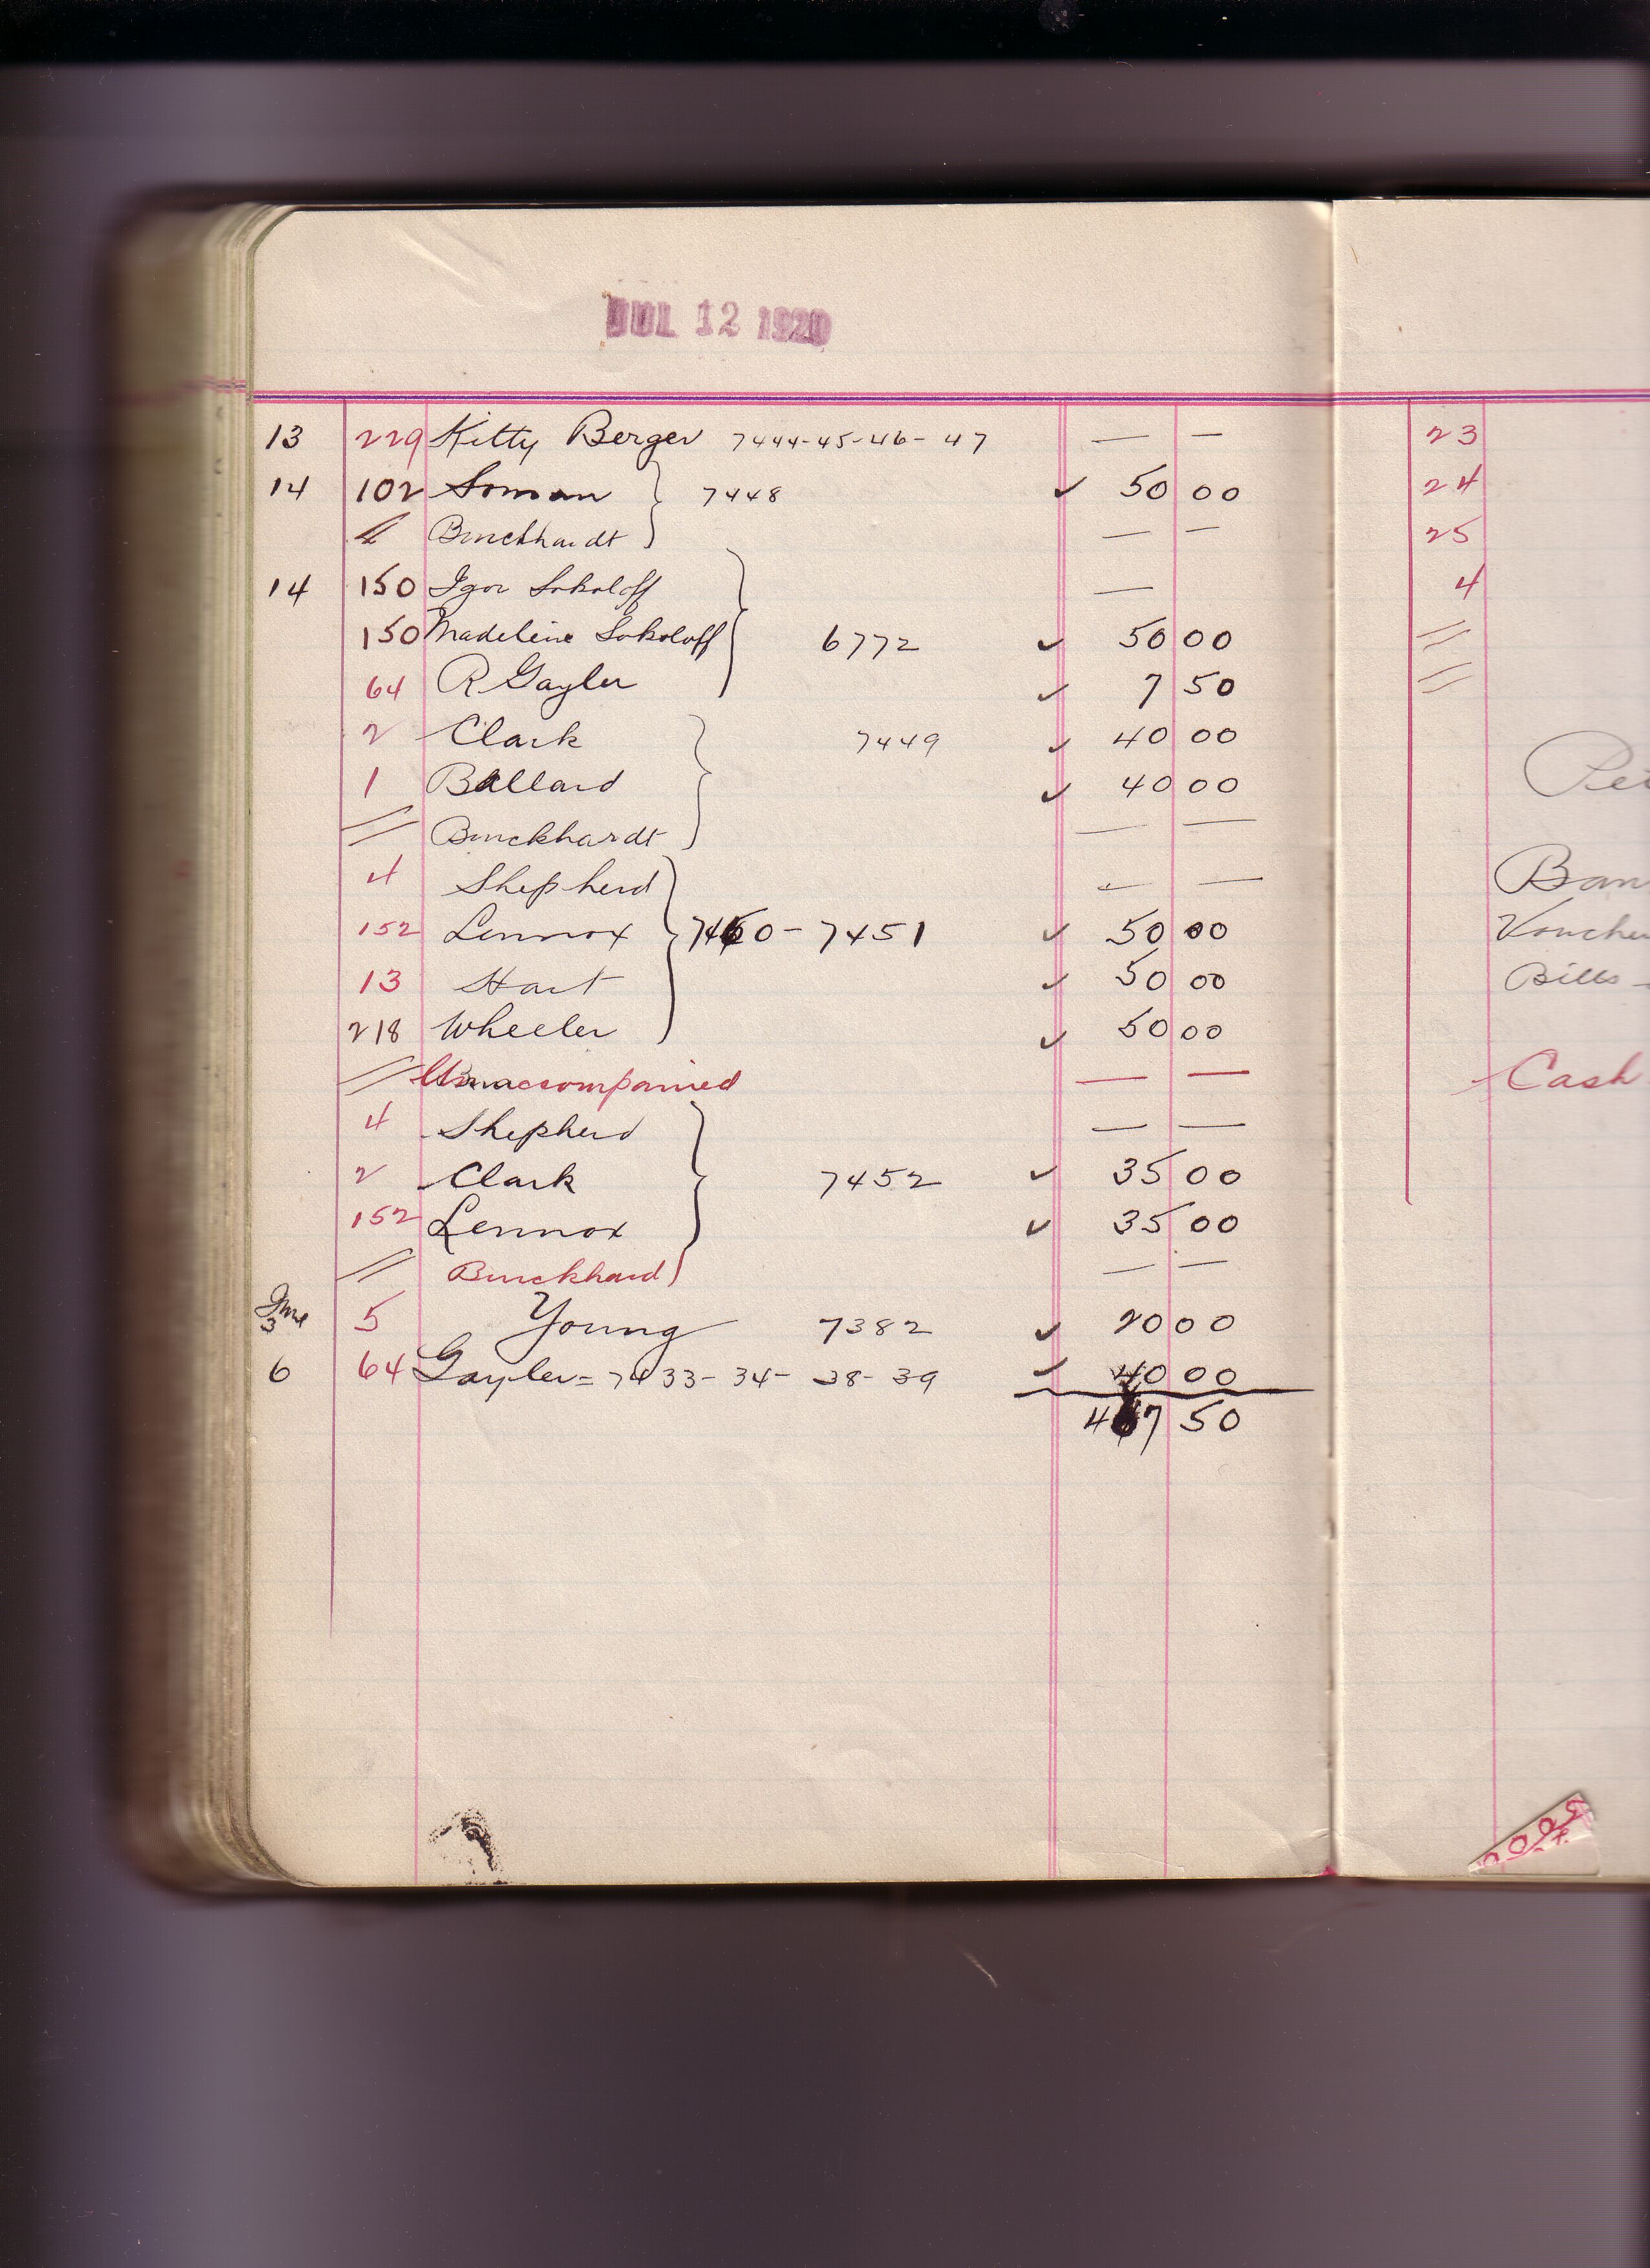 JUL 12 1920
13 229 Kitty Berger 7444-45-46-47 — —
14 102 Soman 7448 ✓ 50 00
4 Burckhardt — —
14 150 Igor Sokoloff —
150 Madeline Sokoloff 6772 ✓ 50 00
64 R Gayler ✓ 7 50
2 Clark 7449 ✓ 40 00
1 Ballard ✓ 40 00
// Burckhardt — —
4 Shepherd — —
152 Lennox 7450-7451 ✓ 50 00
13 Hart ✓ 50 00
218 Wheeler ✓ 50 00
// Unaccompanied — —
4 Shepherd — —
2 Clark 7452 ✓ 35 00
152 Lennox ✓ 35 00
// Burckhard — —
June 3 5 Young 7382 ✓ 20 00
6 64 Gayler = 7433-34-38-39 ✓ 40 00
467 50
23
24
25
4
//
//
Pet
Ban
Vouche
Bills -
Cash